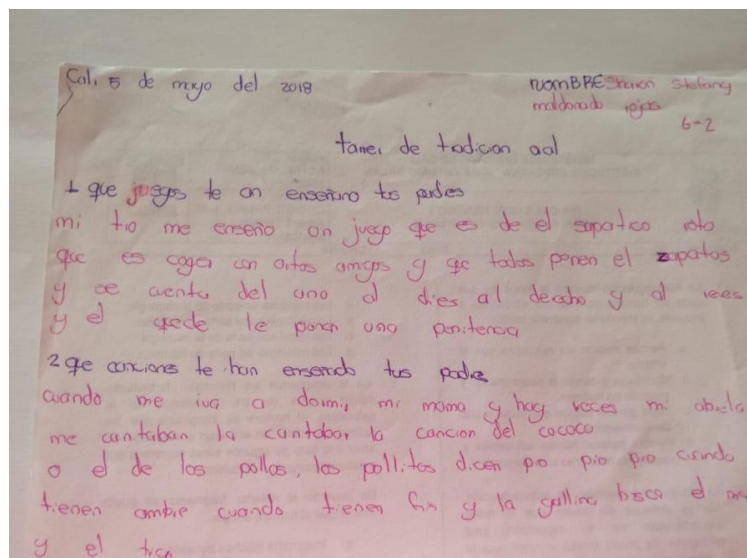 Cali 5 de mayo del 2018 NOMBRE Sharon Stefany
maldonado rojas
6-2
taller de tradicion oral
1 que juegos te an enseñano tus padres
mi tio me enseño un juego que es de el sapatico roto
que es coger con artos amigos y qe todos ponen el zapatos
y se cuenta del uno al dies al derecho y al rees
y el qede le ponen una penitencia
2 qe canciones te han ensenado tus padres
cuando me iva a dormir mi mama y hay veces mi abuela
me cantaban la cantabar la cancion del cococo
o el de los pollos, los pollitos dicen pio pio pio cuando
tienen ambre cuando tienen frio y la gallina busca el
y el